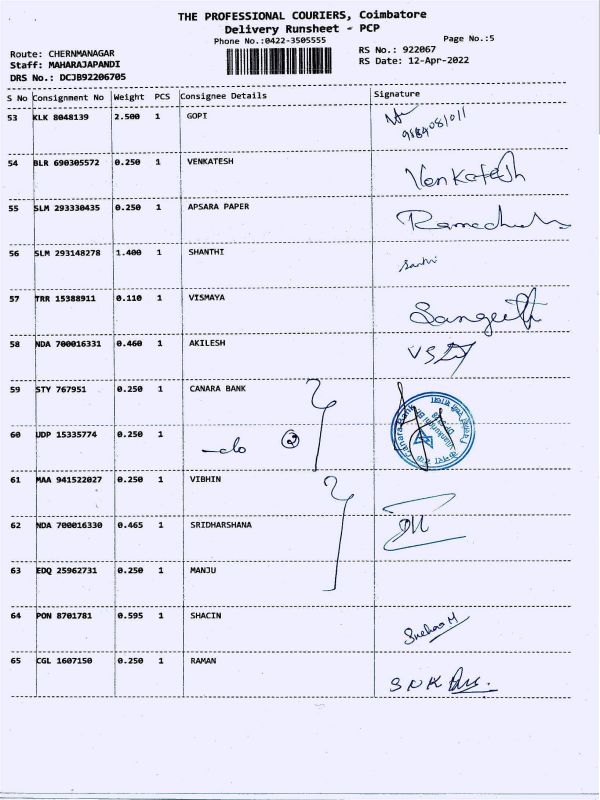 THE PROFESSIONAL COURIERS, Coimbatore
Delivery Runsheet - PCP
Phone No.:0422-3505555
Page No.:5
Route: CHERNMANAGAR
RS No.: 922067
Staff: MAHARAJAPANDI
RS Date: 12-Apr-2022
DRS No.: DCJB92206705
S No Consignment No Weight PCS Consignee Details Signature
53 KLK 8048139 2.500 1 GOPI
54 BLR 690305572 0.250 1 VENKATESH Venkatesh
55 SLM 293330435 0.250 1 APSARA PAPER
56 SLM 293148278 1.400 1 SHANTHI
57 TRR 15388911 0.110 1 VISMAYA Sangeeth
58 NDA 700016331 0.460 1 AKILESH
59 STY 767951 0.250 1 CANARA BANK
Canara Bank
60 UDP 15335774 0.250 1 -do 2
61 MAA 941522027 0.250 1 VIBHIN
62 NDA 700016330 0.465 1 SRIDHARSHANA
63 EDQ 25962731 0.250 1 MANJU
64 PON 8701781 0.595 1 SHACIN
65 CGL 1607150 0.250 1 RAMAN SNK